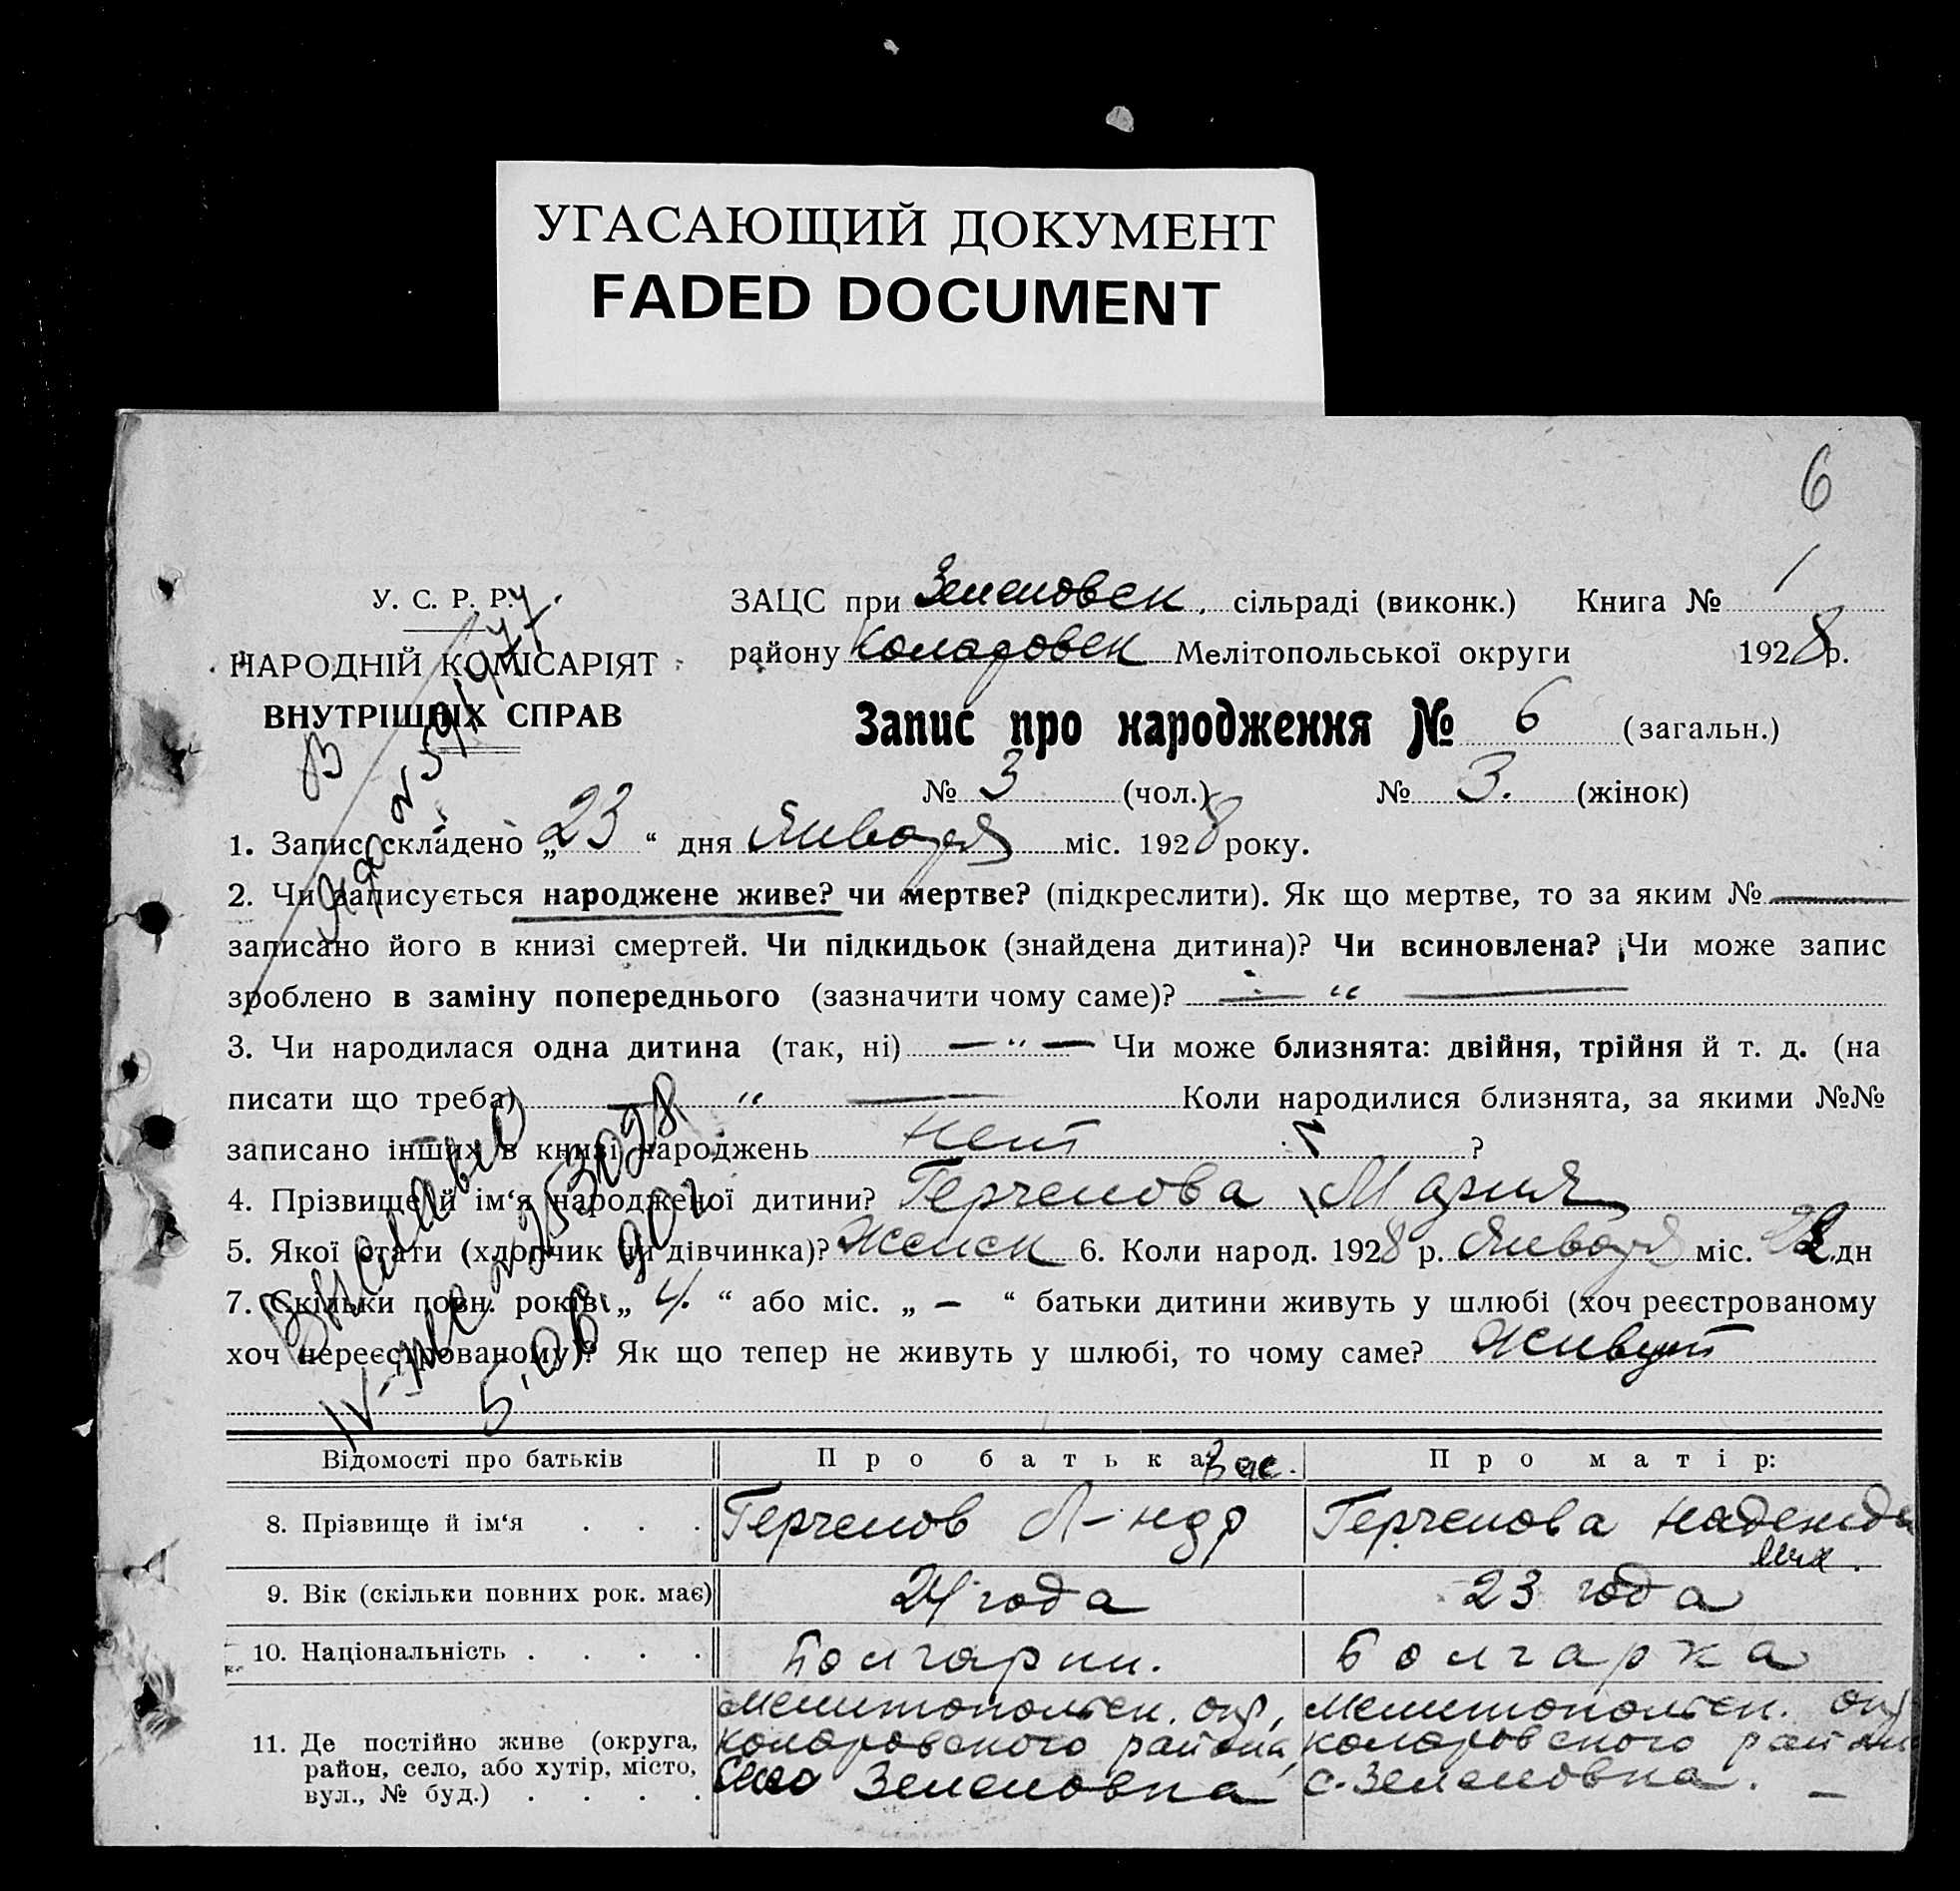 УГАСАЮЩИЙ ДОКУМЕНТ
FADED DOCUMENT
6
У. С. Р. Р.
НАРОДНІЙ КОМІСАРІЯТ
ВНУТРІШНІХ СПРАВ
ЗАЦС при Зеленовск. сільраді (виконк.) Книга № 1
району Коларовск Мелітопольської округи 1928 р.
Запис про народження № 6 (загальн.)
№ 3 (чол.) № 3. (жінок)
1. Запис складено „ 23 “ дня Января міс. 1928 року.
2. Чи записується народжене живе? чи мертве? (підкреслити). Як що мертве, то за яким № —
записано його в книзі смертей. Чи підкидьок (знайдена дитина)? Чи всиновлена? Чи може запис
зроблено в заміну попереднього (зазначити чому саме)? — “ —
3. Чи народилася одна дитина (так, ні) — “ — Чи може близнята: двійня, трійня й т. д. (на
писати що треба) — “ — Коли народилися близнята, за якими №№
записано інших в книзі народжень нет ?
4. Прізвище й ім‘я народженої дитини? Герченова Мария
5. Якої стати (хлопчик чи дівчинка)? Женск 6. Коли народ. 1928 р. Января міс. 22 дн
7. Скільки повн. років „ 4. “ або міс. „ — “ батьки дитини живуть у шлюбі (хоч реєстрованому
хоч нереєстрованому)? Як що тепер не живуть у шлюбі, то чому саме? Живут
IV-
5.06.90г
Відомості про батьків Про батька: Про матір:
Вас.
8. Прізвище й ім‘я . . . Герченов А-ндр Герченова Надежда
Мих.
9. Вік (скільки повних рок. має) 24 года 23 года
10. Національність . . . . Болгарин. Болгарка
11. Де постійно живе (округа,
район, село, або хутір, місто,
вул., № буд.) . . . .
Мелитопольск. окр,
Коларовского района,
Село Зеленовка
Мелитопольск. окр
Коларовского район
с. Зеленовка. —